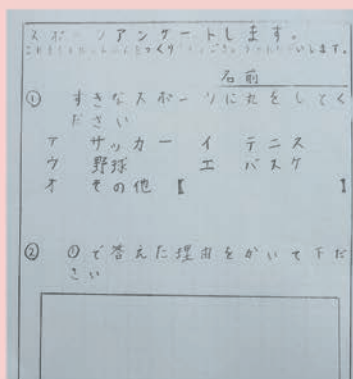 スポーツアンケートします。
いします。
名前
① すきなスポーツに丸をしてく
ださい
ア サッカー イ テニス
ウ 野球 エ バスケ
オ その他 【 】
② ①で答えた理由をかいて下だ
さい